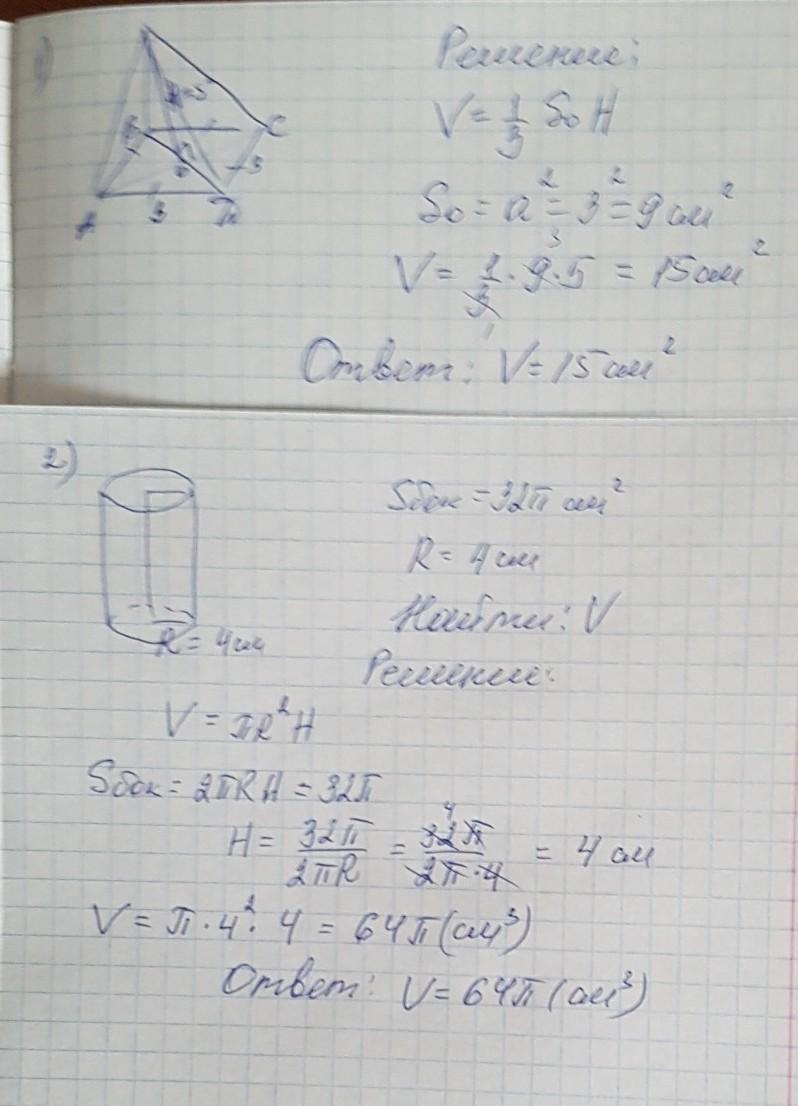 Решение:
V = 1/3 So H
So = a² = 3² = 9 см²
V = 1/3 · 9 · 5 = 15 см²
Ответ: V = 15 см²
C
3
A
3
2)
R = 4 см
Sбок = 32π см²
R = 4 см
Найти: V
Решение:
V = πR²H
Sбок = 2πRH = 32π
H = 32π/2πR = 32π/2π·4 = 4 см
V = π · 4² · 4 = 64π (см³)
Ответ: V = 64π (см³)